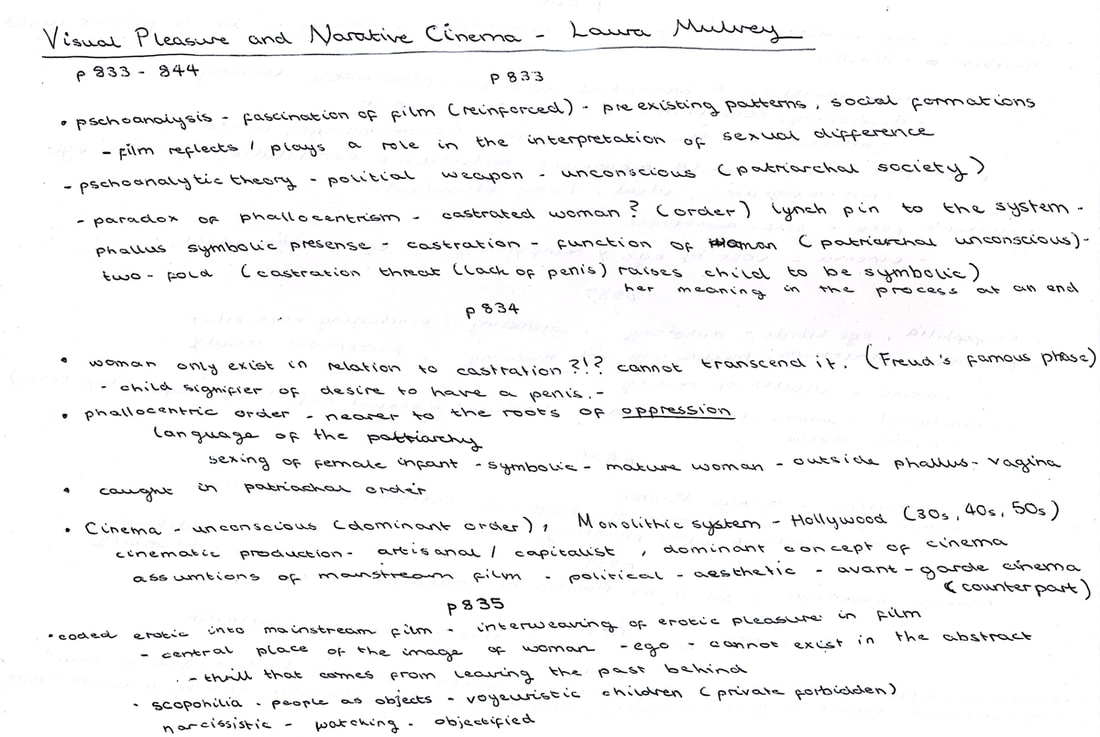 Visual Pleasure and Narative Cinema - Laura Mulvey
p 833 - 844
p 833
• pschoanalysis - fascination of film (reinforced) - pre existing patterns, social formations
- film reflects / plays a role in the interpretation of sexual difference
- pschoanalytic theory - politial weapon - unconscious (patriarchal society)
- paradox of phallocentrism - castrated woman? (order) lynch pin to the system -
phallus symbolic presense - castration - function of woman (patriarchal unconscious) -
two - fold (castration threat (lack of penis) raises child to be symbolic)
her meaning in the process at an end
p 834
• woman only exist in relation to castration ?!? cannot transcend it. (Freud's famous phase)
- child signifier of desire to have a penis. -
• phallocentric order - nearer to the roots of oppression
language of the patriarchy
sexing of female infant - symbolic - mature woman - outside phallus - vagina
• caught in patriachal order
• Cinema - unconscious (dominant order), Monolithic system - Hollywood (30s, 40s, 50s)
cinematic production - artisanal / capitalist, dominant concept of cinema
assumtions of mainstream film - political - aesthetic - avant - garde cinema
(counterpart)
p835
• coded erotic into mainstream film - interweaving of erotic pleasure in film
- central place of the image of woman - ego - cannot exist in the abstract
- thrill that comes from leaving the past behind
• scopohilia - people as objects - voyeuristic children (private forbidden)
narcissistic - watching - objectified